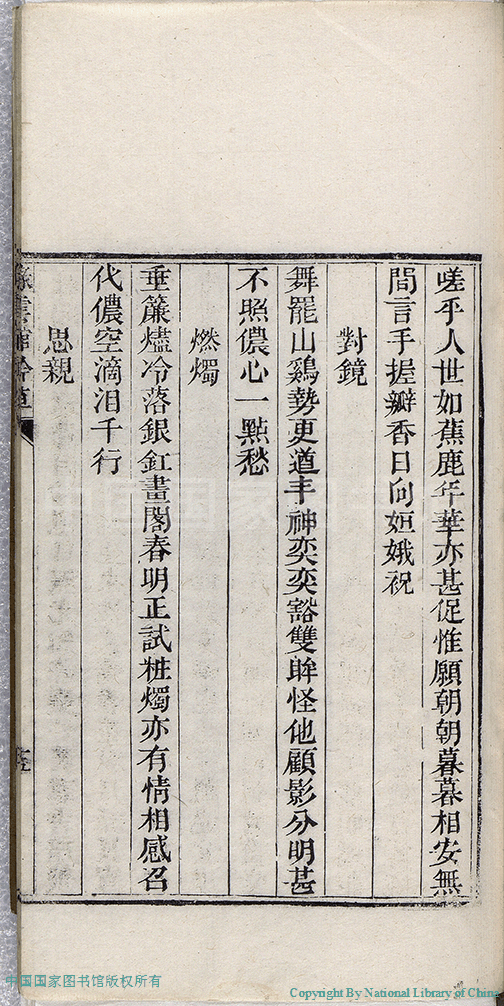 嗟乎人世如蕉鹿年華亦甚促惟願朝朝暮暮相安無
間言手握瓣香日向姮娥祝
對鏡
舞罷山鷄勢更遒丰神奕奕豁雙眸怪他顧影分明甚
不照儂心一點愁
燃燭
垂簾燼冷落銀釭畫閣春明正試粧燭亦有情相感召
代儂空滴泪千行
思親
中国国家图书馆版权所有
Copyright By National Library of China